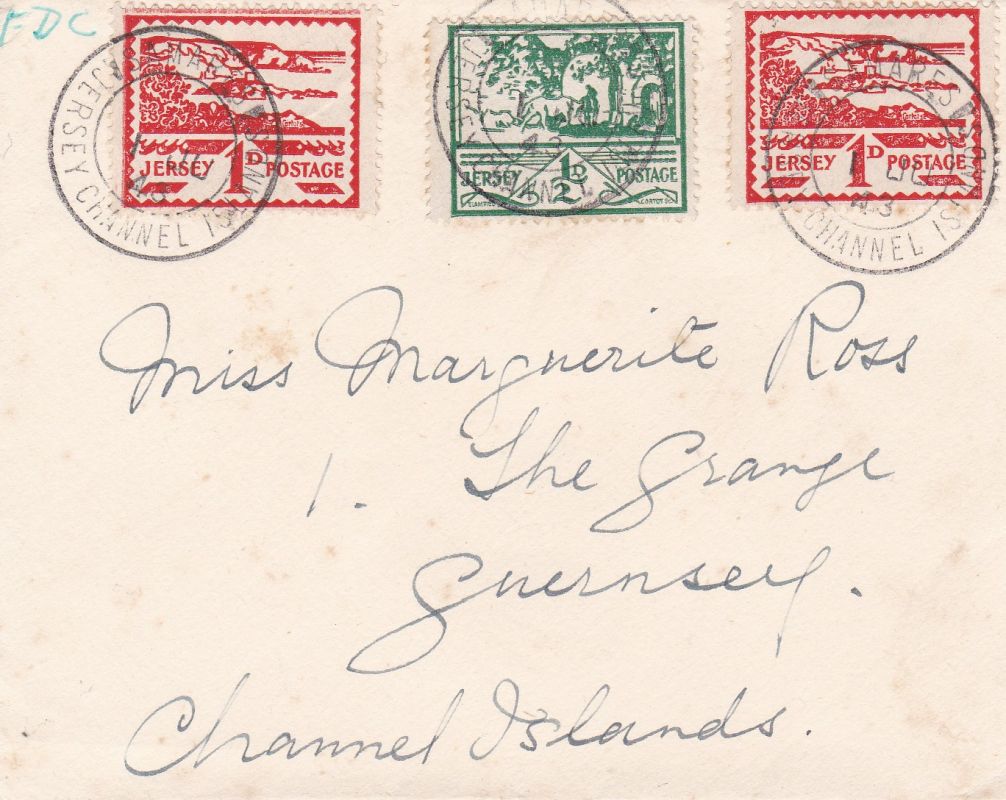 FDC
JERSEY 1D POSTAGE
JERSEY ½D POSTAGE
JERSEY 1D POSTAGE
JERSEY CHANNEL
43
CHANNEL
Miss Marguerite Ross
1. The Grange
Guernsey.
Channel Islands.